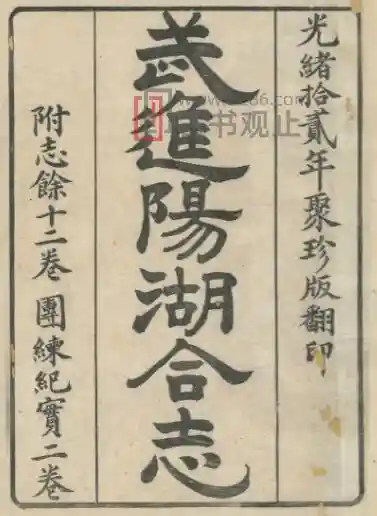 光緒拾貳年聚珍版翻印
武進陽湖合志
附志餘十二卷團練紀實二卷
书观止